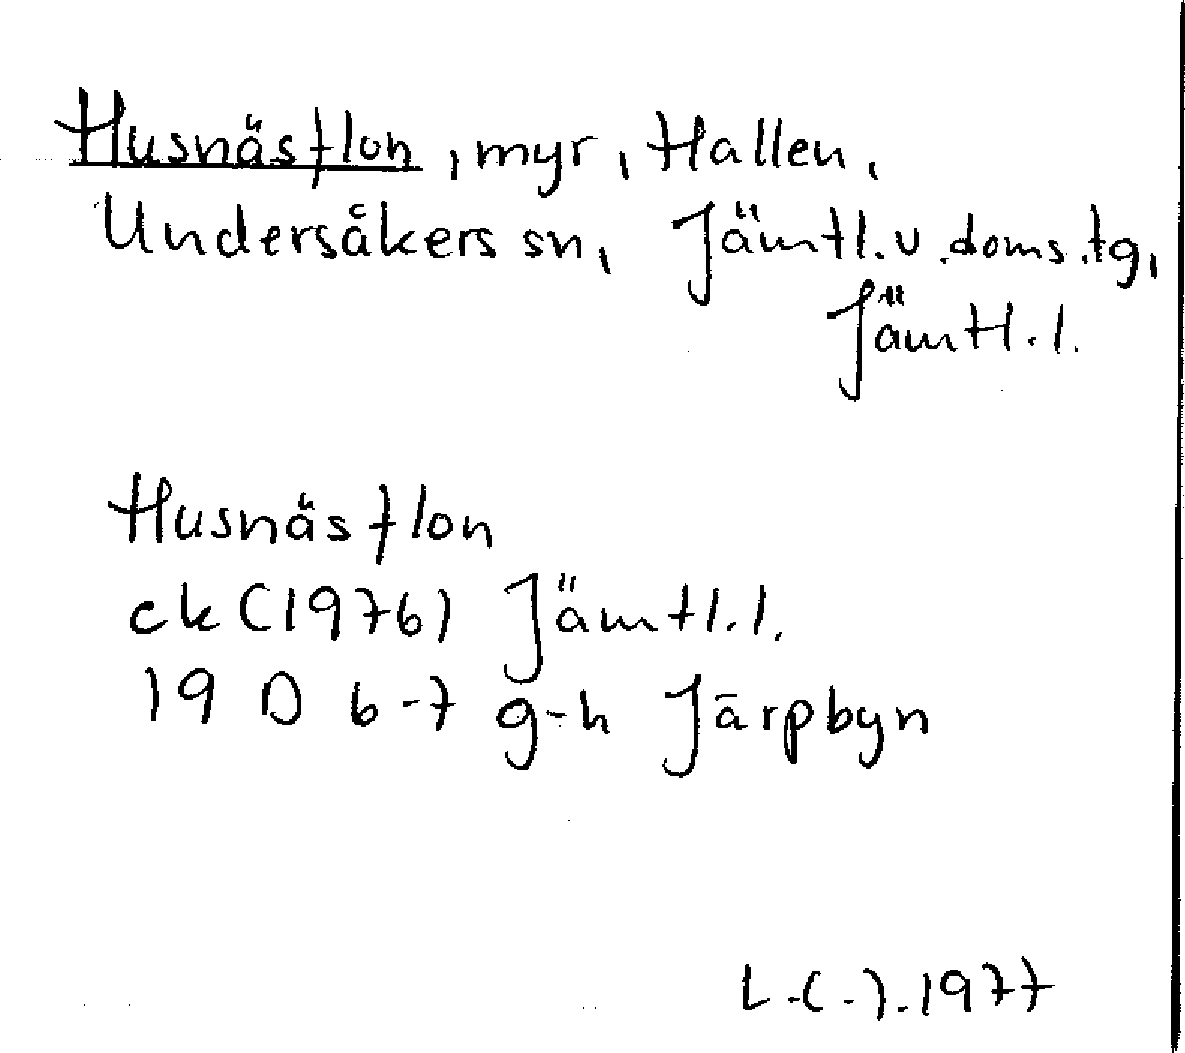 Husnäsflon, myr, Hallen,
Undersåkers sn, Jämtl.v.doms.tg,
Jämtl.l.
Husnäsflon
ek (1976) Jämtl.l.
19 D 6-7 g-h Järpbyn
L.(-).1977